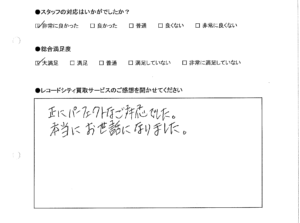 ●スタッフの対応はいかがでしたか？
☑非常に良かった □良かった □普通 □良くない □非常に良くない
●総合満足度
☑大満足 □満足 □普通 □満足していない □非常に満足していない
●レコードシティ買取サービスのご感想を聞かせてください
正にパーフェクトなご対応でした。
本当にお世話になりました。